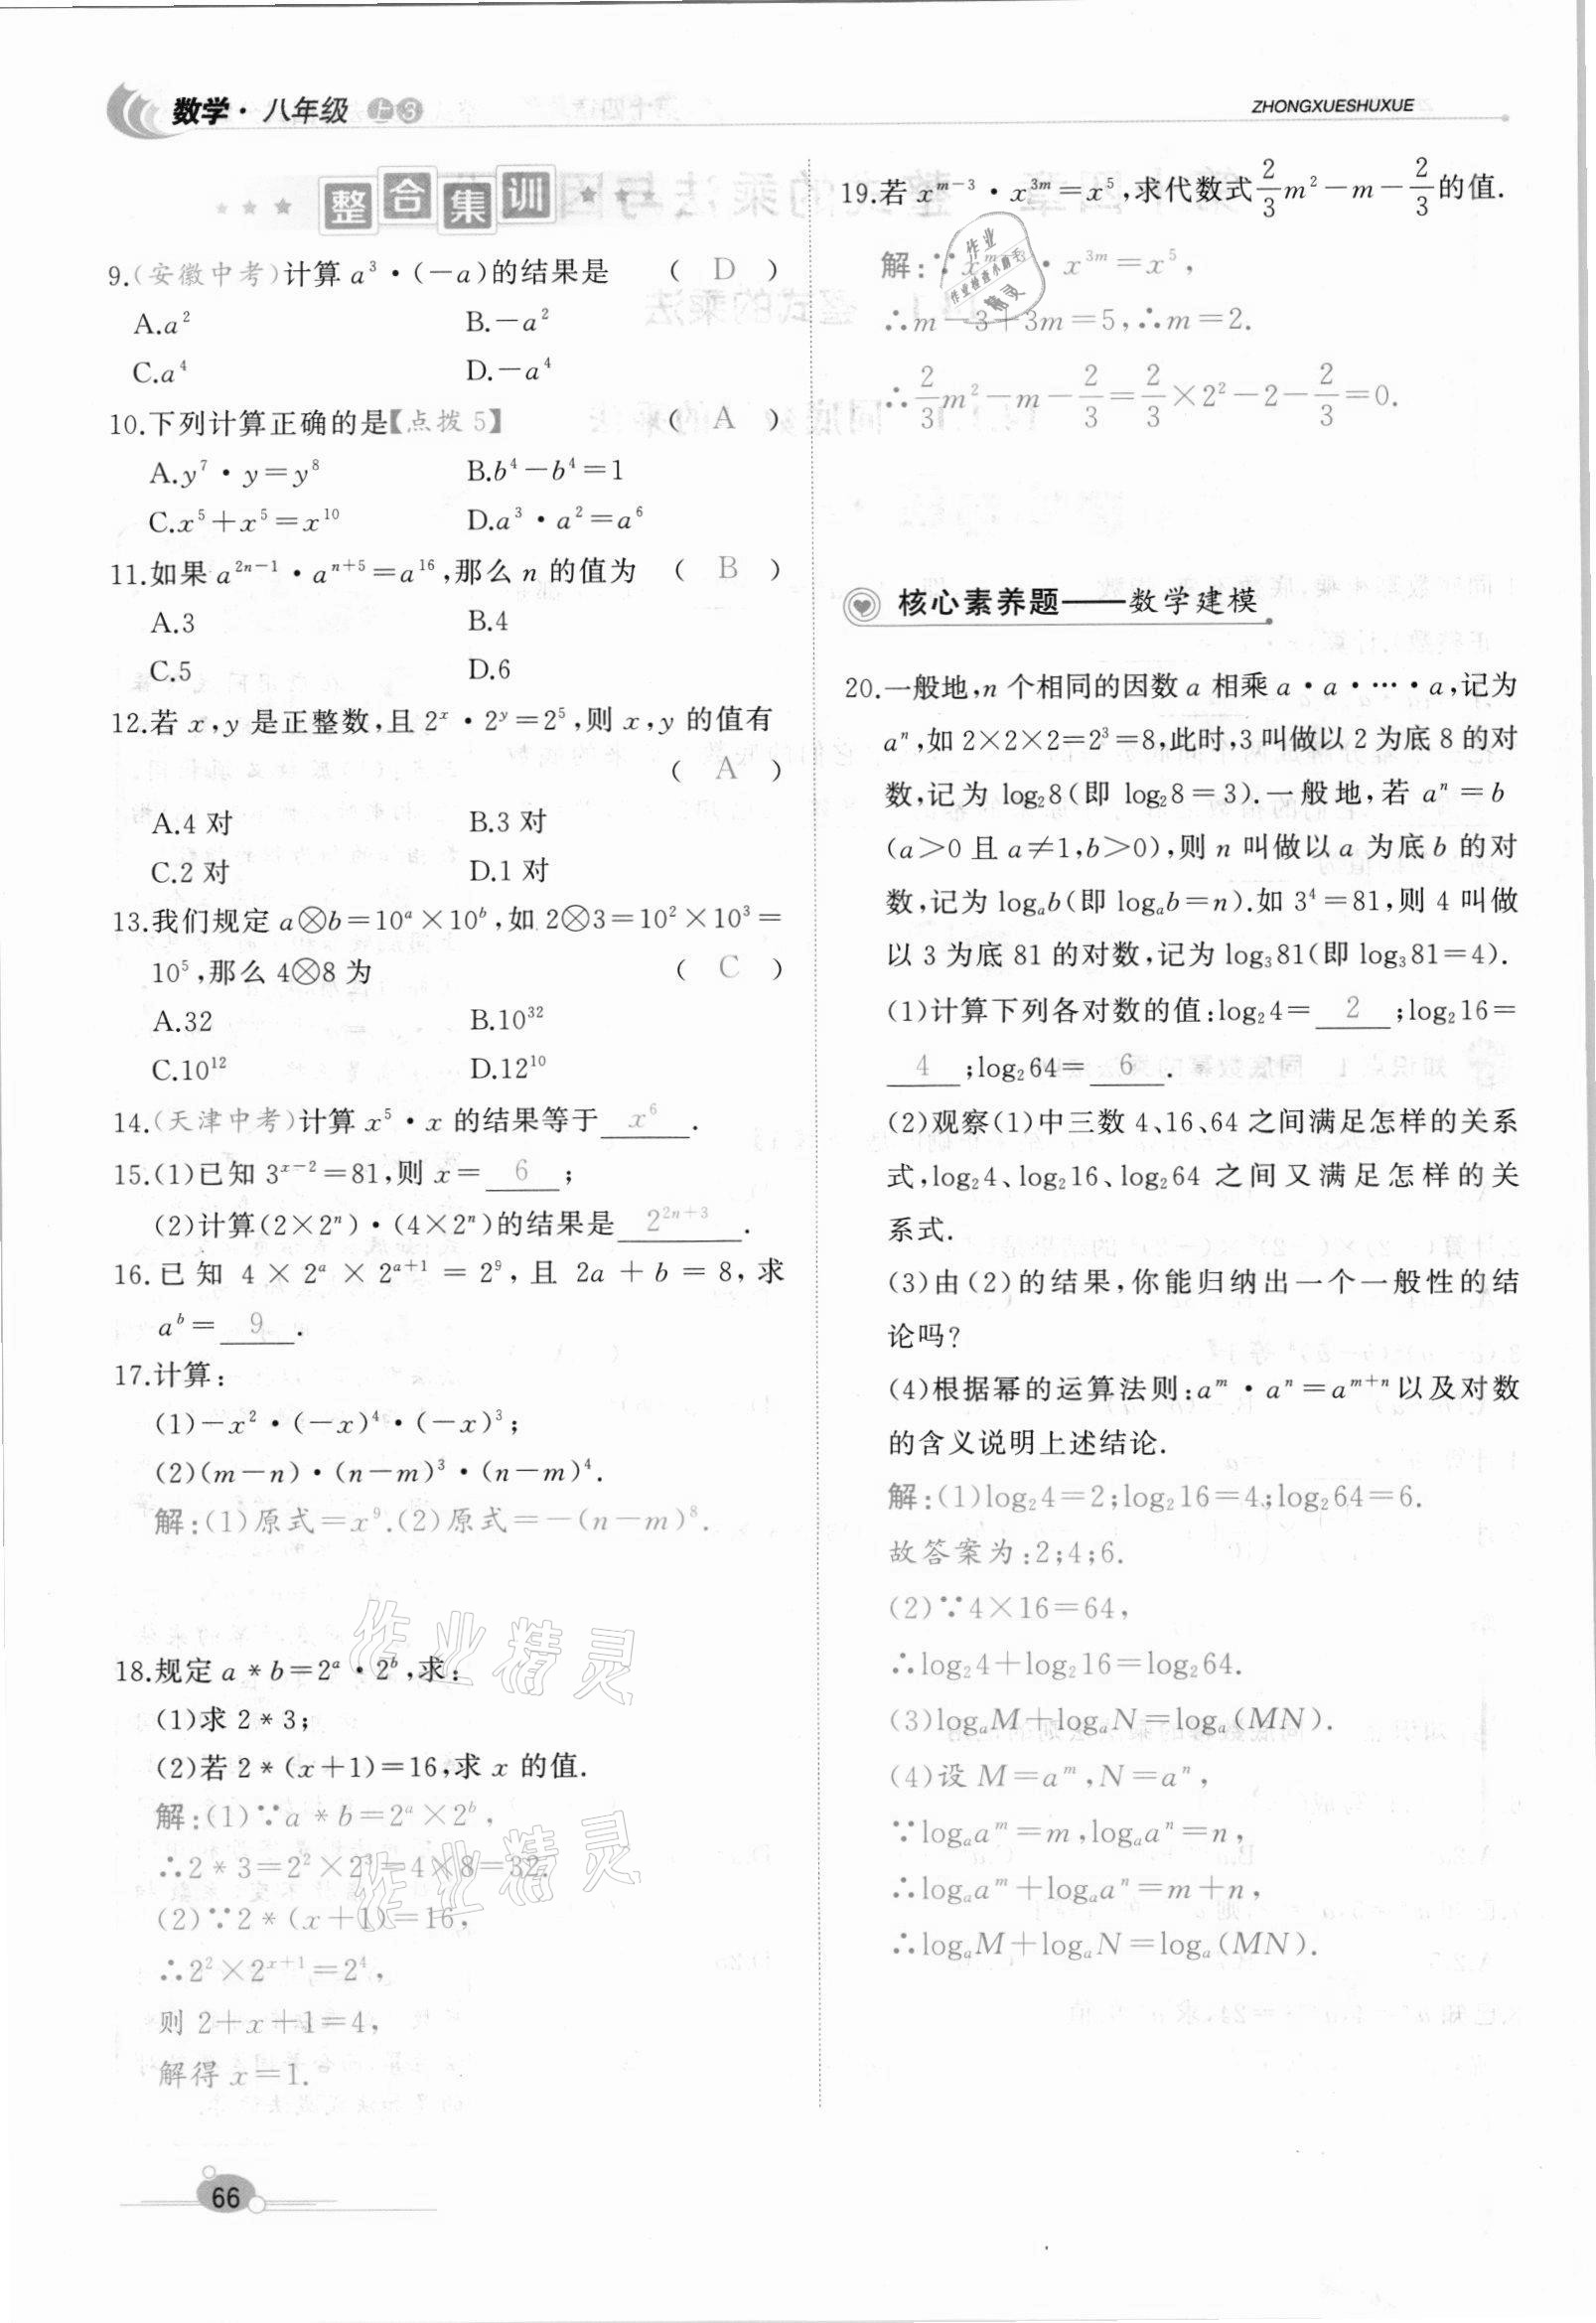 数学·八年级 上 ③
ZHONGXUESHUXUE
整合集训
9.(安徽中考)计算 a³·(−a)的结果是 ( D )
A.a² B.−a²
C.a⁴ D.−a⁴
10.下列计算正确的是【点拨 5】 ( A )
A.y⁷·y=y⁸ B.b⁴−b⁴=1
C.x⁵+x⁵=x¹⁰ D.a³·a²=a⁶
11.如果 a²ⁿ⁻¹·aⁿ⁺⁵=a¹⁶,那么 n 的值为 ( B )
A.3 B.4
C.5 D.6
12.若 x,y 是正整数,且 2ˣ·2ʸ=2⁵,则 x,y 的值有
( A )
A.4 对 B.3 对
C.2 对 D.1 对
13.我们规定 a⊗b=10ᵃ×10ᵇ,如 2⊗3=10²×10³=
10⁵,那么 4⊗8 为 ( C )
A.32 B.10³²
C.10¹² D.12¹⁰
14.(天津中考)计算 x⁵·x 的结果等于 x⁶ .
15.(1)已知 3ˣ⁻²=81,则 x= 6 ;
(2)计算(2×2ⁿ)·(4×2ⁿ)的结果是 2²ⁿ⁺³ .
16.已知 4×2ᵃ×2ᵃ⁺¹=2⁹,且 2a+b=8,求
aᵇ= 9 .
17.计算:
(1)−x²·(−x)⁴·(−x)³;
(2)(m−n)·(n−m)³·(n−m)⁴.
解:(1)原式=x⁹.(2)原式=−(n−m)⁸.
18.规定 a*b=2ᵃ·2ᵇ,求:
(1)求 2*3;
(2)若 2*(x+1)=16,求 x 的值.
解:(1)∵a*b=2ᵃ×2ᵇ,
∴2*3=2²×2³=4×8=32.
(2)∵2*(x+1)=16,
∴2²×2ˣ⁺¹=2⁴,
则 2+x+1=4,
解得 x=1.
66
19.若 xᵐ⁻³·x³ᵐ=x⁵,求代数式 2/3 m²−m−2/3 的值.
解:∵xᵐ⁻³·x³ᵐ=x⁵,
∴m−3+3m=5,∴m=2.
∴2/3 m²−m−2/3=2/3×2²−2−2/3=0.
核心素养题——数学建模
20.一般地,n 个相同的因数 a 相乘 a·a·…·a,记为
aⁿ,如 2×2×2=2³=8,此时,3 叫做以 2 为底 8 的对
数,记为 log₂8(即 log₂8=3).一般地,若 aⁿ=b
(a>0 且 a≠1,b>0),则 n 叫做以 a 为底 b 的对
数,记为 logₐb(即 logₐb=n).如 3⁴=81,则 4 叫做
以 3 为底 81 的对数,记为 log₃81(即 log₃81=4).
(1)计算下列各对数的值:log₂4= 2 ;log₂16=
4 ;log₂64= 6 .
(2)观察(1)中三数 4、16、64 之间满足怎样的关系
式,log₂4、log₂16、log₂64 之间又满足怎样的关
系式.
(3)由(2)的结果,你能归纳出一个一般性的结
论吗?
(4)根据幂的运算法则:aᵐ·aⁿ=aᵐ⁺ⁿ以及对数
的含义说明上述结论.
解:(1)log₂4=2;log₂16=4;log₂64=6.
故答案为:2;4;6.
(2)∵4×16=64,
∴log₂4+log₂16=log₂64.
(3)logₐM+logₐN=logₐ(MN).
(4)设 M=aᵐ,N=aⁿ,
∵logₐaᵐ=m,logₐaⁿ=n,
∴logₐaᵐ+logₐaⁿ=m+n,
∴logₐM+logₐN=logₐ(MN).
作业精灵
作业精灵